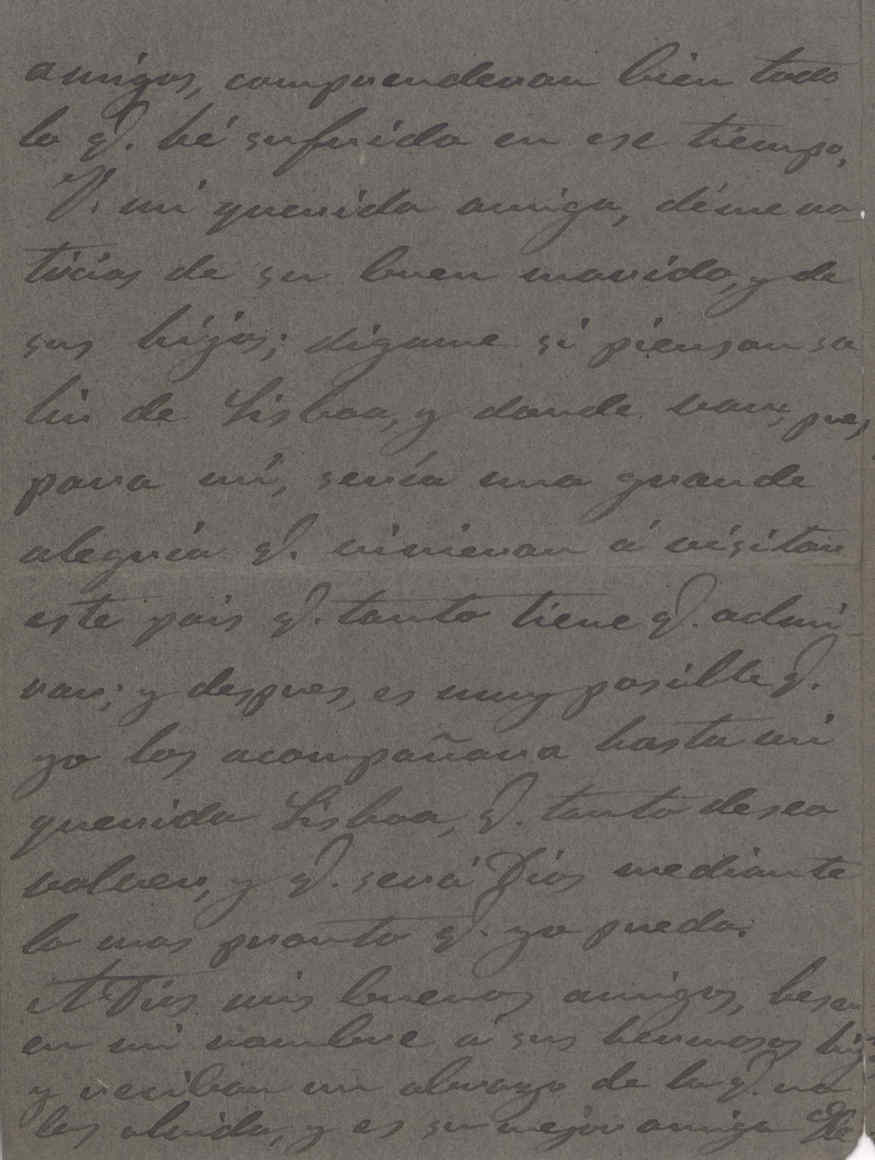 amigos, comprenderan bien todo
lo q. hé sufrido en ese tiempo,
V. mi querida amiga, déme no-
ticias de su buen marido, y de
sus hijos; digame si piensan sa
lir de Lisboa, y donde van; pues,
para mí, sería una grande
alegria q. vinieran á visitar
este pais q. tanto tiene q. admi-
rar; y despues, es muy posible q.
yo los acompañara hasta mi
querida Lisboa, q. tanto deseo
volver, y q. será Dios mediante
lo mas pronto q. yo pueda.
A Dios mis buenos amigos, besen
en mi nombre á sus hermosos hijos
y reciban un abrazo de la q. no
les olvida, y es su mejor amiga